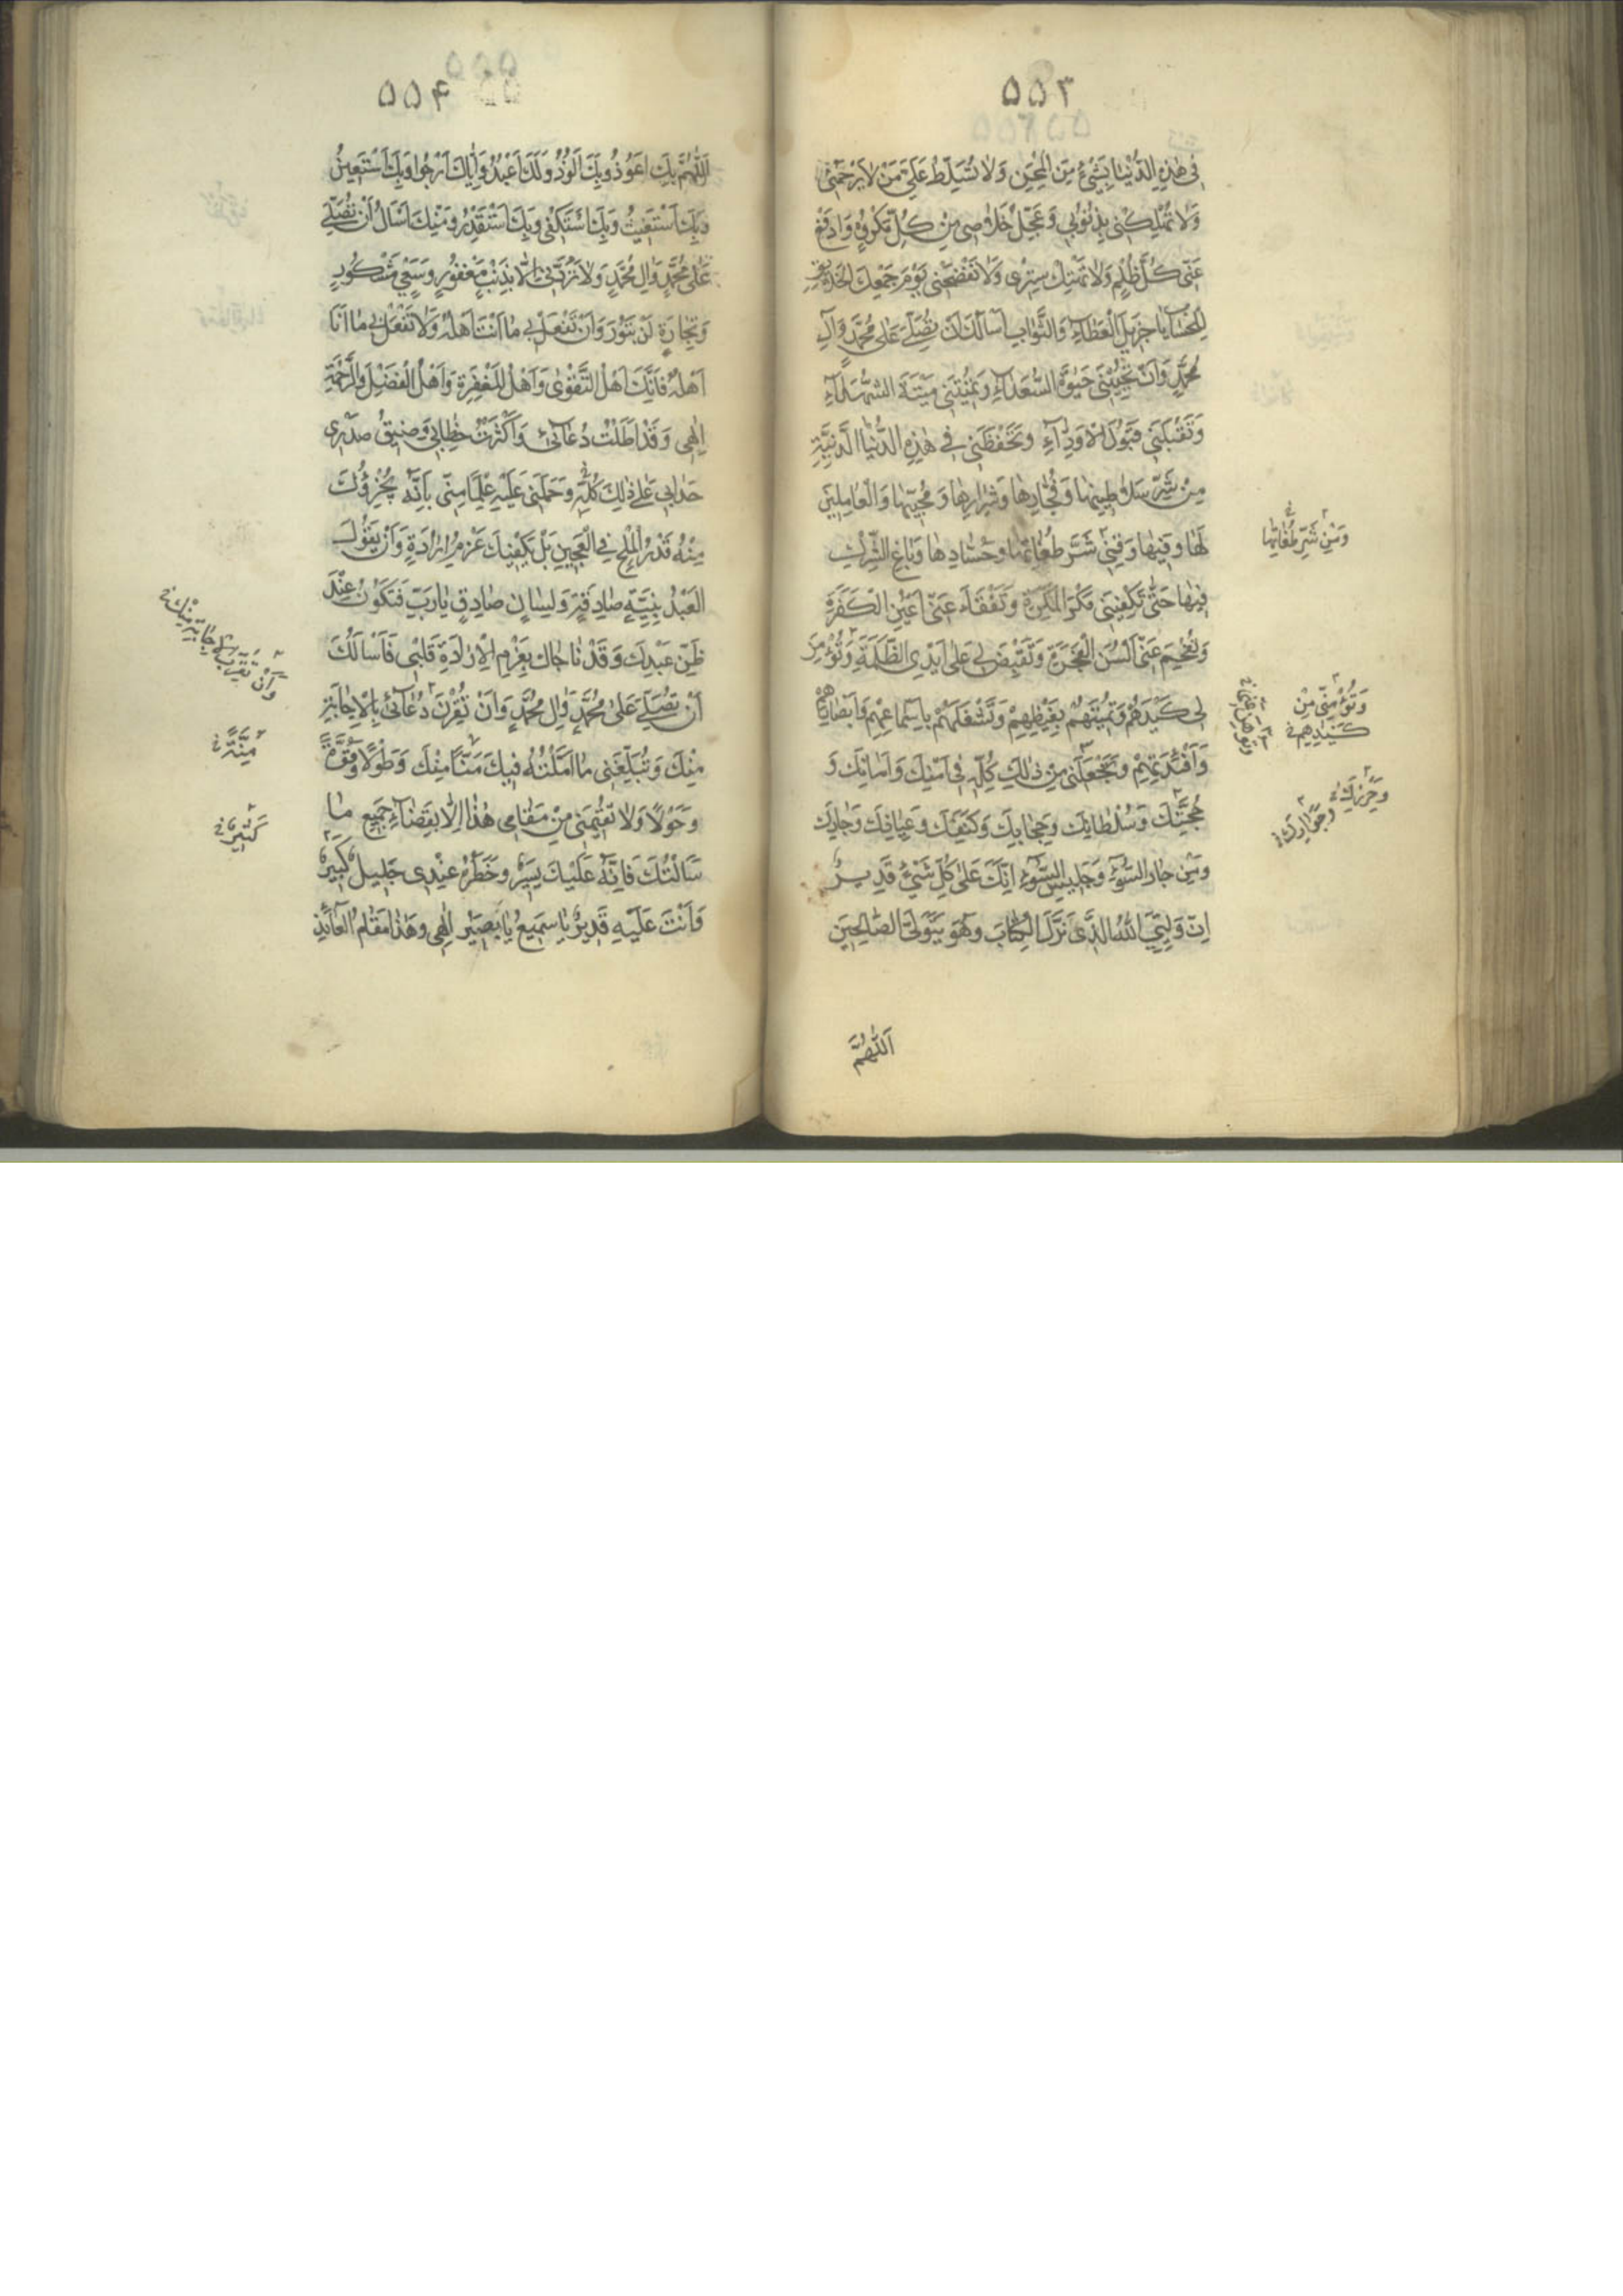 ٥٥٣
فی هٰذِهِ الدُّنْیا بِشَیْءٍ مِنَ الْمِحَنِ وَلا تُسَلِّطْ عَلَیَّ مَنْ لا یَرْحَمُنی
وَلا تُهْلِکْنی بِذُنُوبی وَعَجِّلْ خَلاصی مِنْ کُلِّ مَکْرُوهٍ وَادْفَعْ
عَنّی کُلَّ ظُلْمٍ وَلا تَهْتِکْ سِتْری وَلا تَفْضَحْنی یَوْمَ جَمْعِکَ الْخَلائِقَ
لِلْحِسابِ یا جَزیلَ الْعَطاءِ وَالثَّوابِ اَسْاَلُکَ اَنْ تُصَلِّیَ عَلیٰ مُحَمَّدٍ وَآلِ
مُحَمَّدٍ وَاَنْ تُحْیِیَنی حَیٰوةَ السُّعَداءِ وَتُمیتَنی میتَةَ الشُّهَداءِ
وَتَقْبَلَنی قَبُولَ الْاَوِدّاءِ وَتَحْفَظَنی فی هٰذِهِ الدُّنْیَا الدَّنِیَّةِ
مِنْ شَرِّ سَلاطینِها وَفُجّارِها وَشِرارِها وَمُحِبّیها وَالْعامِلینَ
لَها وَفیها وَقِنی شَرَّ طُغاتِها وَحُسّادِها وَباغِی الشِّرْکِ
فیها حَتّیٰ تَکْفِیَنی مَکْرَ الْمَکَرَةِ وَتَفْقَاَ عَنّی اَعْیُنَ الْکَفَرَةِ
وَتُفْحِمَ عَنّی اَلْسُنَ الْفَجَرَةِ وَتَقْبِضَ لی عَلیٰ اَیْدِی الظَّلَمَةِ وَتُؤْمِنَ
لی کَیْدَهُمْ وَتُمیتَهُمْ بِغَیْظِهِمْ وَتَشْغَلَهُمْ بِاَسْماعِهِمْ وَاَبْصارِهِمْ
وَاَفْئِدَتِهِمْ وَتَجْعَلَنی مِنْ ذٰلِکَ کُلِّهِ فی اَمْنِکَ وَاَمانِکَ وَ
حُجَّتِکَ وَسُلْطانِکَ وَحِجابِکَ وَکَنَفِکَ وَعِیاذِکَ وَجارِکَ
وَمِنْ جارِ السُّوءِ وَجَلیسِ السُّوءِ اِنَّکَ عَلیٰ کُلِّ شَیْءٍ قَدیرٌ
اِنَّ وَلِیِّیَ اللّٰهُ الَّذی نَزَّلَ الْکِتابَ وَهُوَ یَتَوَلَّی الصّالِحینَ
اَللّٰهُمَّ
وَمِنْ شَرِّ طُغاتِها
وَتُؤْمِنَنی مِنْ
کَیْدِهِمْ
وَحِرْزِکَ
وَجِوارِکَ
٥٥۴
اَللّٰهُمَّ بِکَ اَعُوذُ وَبِکَ اَلُوذُ وَلَکَ اَعْبُدُ وَاِیّاکَ اَرْجُوا وَبِکَ اَسْتَعینُ
وَبِکَ اَسْتَغیثُ وَبِکَ اَسْتَکْفی وَبِکَ اَسْتَقْدِرُ وَمِنْکَ اَسْاَلُ اَنْ تُصَلِّیَ
عَلیٰ مُحَمَّدٍ وَآلِ مُحَمَّدٍ وَلا تَرُدَّنی اِلّا بِذَنْبٍ مَغْفُورٍ وَسَعْیٍ مَشْکُورٍ
وَتِجارَةٍ لَنْ تَبُورَ وَاَنْ تَفْعَلَ بی ما اَنْتَ اَهْلُهُ وَلا تَفْعَلْ بی ما اَنَا
اَهْلُهُ فَاِنَّکَ اَهْلُ التَّقْویٰ وَاَهْلُ الْمَغْفِرَةِ وَاَهْلُ الْفَضْلِ وَالرَّحْمَةِ
اِلٰهی وَقَدْ اَطَلْتُ دُعائی وَاَکْثَرْتُ خِطابی وَضیقُ صَدْری
حَدانی عَلیٰ ذٰلِکَ کُلِّهِ وَحَمَلَنی عَلَیْهِ عِلْماً مِنّی بِاَنَّهُ یُجْزِؤُکَ
مِنْهُ قَدْرُ الْمِلْحِ فِی الْعَجینِ بَلْ یَکْفیکَ عَزْمُ اِرادَةٍ وَاَنْ یَقُولَ
الْعَبْدُ بِنِیَّةٍ صادِقَةٍ وَلِسانٍ صادِقٍ یا رَبِّ فَتَکُونُ عِنْدَ
ظَنِّ عَبْدِکَ وَقَدْ ناجاکَ بِعَزْمِ الْاِرادَةِ قَلْبی فَاَسْاَلُکَ
اَنْ تُصَلِّیَ عَلیٰ مُحَمَّدٍ وَآلِ مُحَمَّدٍ وَاَنْ تُقْرِنَ دُعائی بِالْاِجابَةِ
مِنْکَ وَتُبَلِّغَنی ما اَمَّلْتُهُ فیکَ مَنّاً مِنْکَ وَطَوْلاً وَقُوَّةً
وَحَوْلاً وَلا تُقِمْنی مِنْ مَقامی هٰذا اِلّا بِقَضاءِ جَمیعِ ما
سَاَلْتُکَ فَاِنَّهُ عَلَیْکَ یَسیرٌ وَخَطَرُهُ عِنْدی جَلیلٌ کَبیرٌ
وَاَنْتَ عَلَیْهِ قَدیرٌ یا سَمیعُ یا بَصیرُ اِلٰهی وَهٰذا مَقامُ الْعائِذِ
مِنَّةً
کَثیرٌ